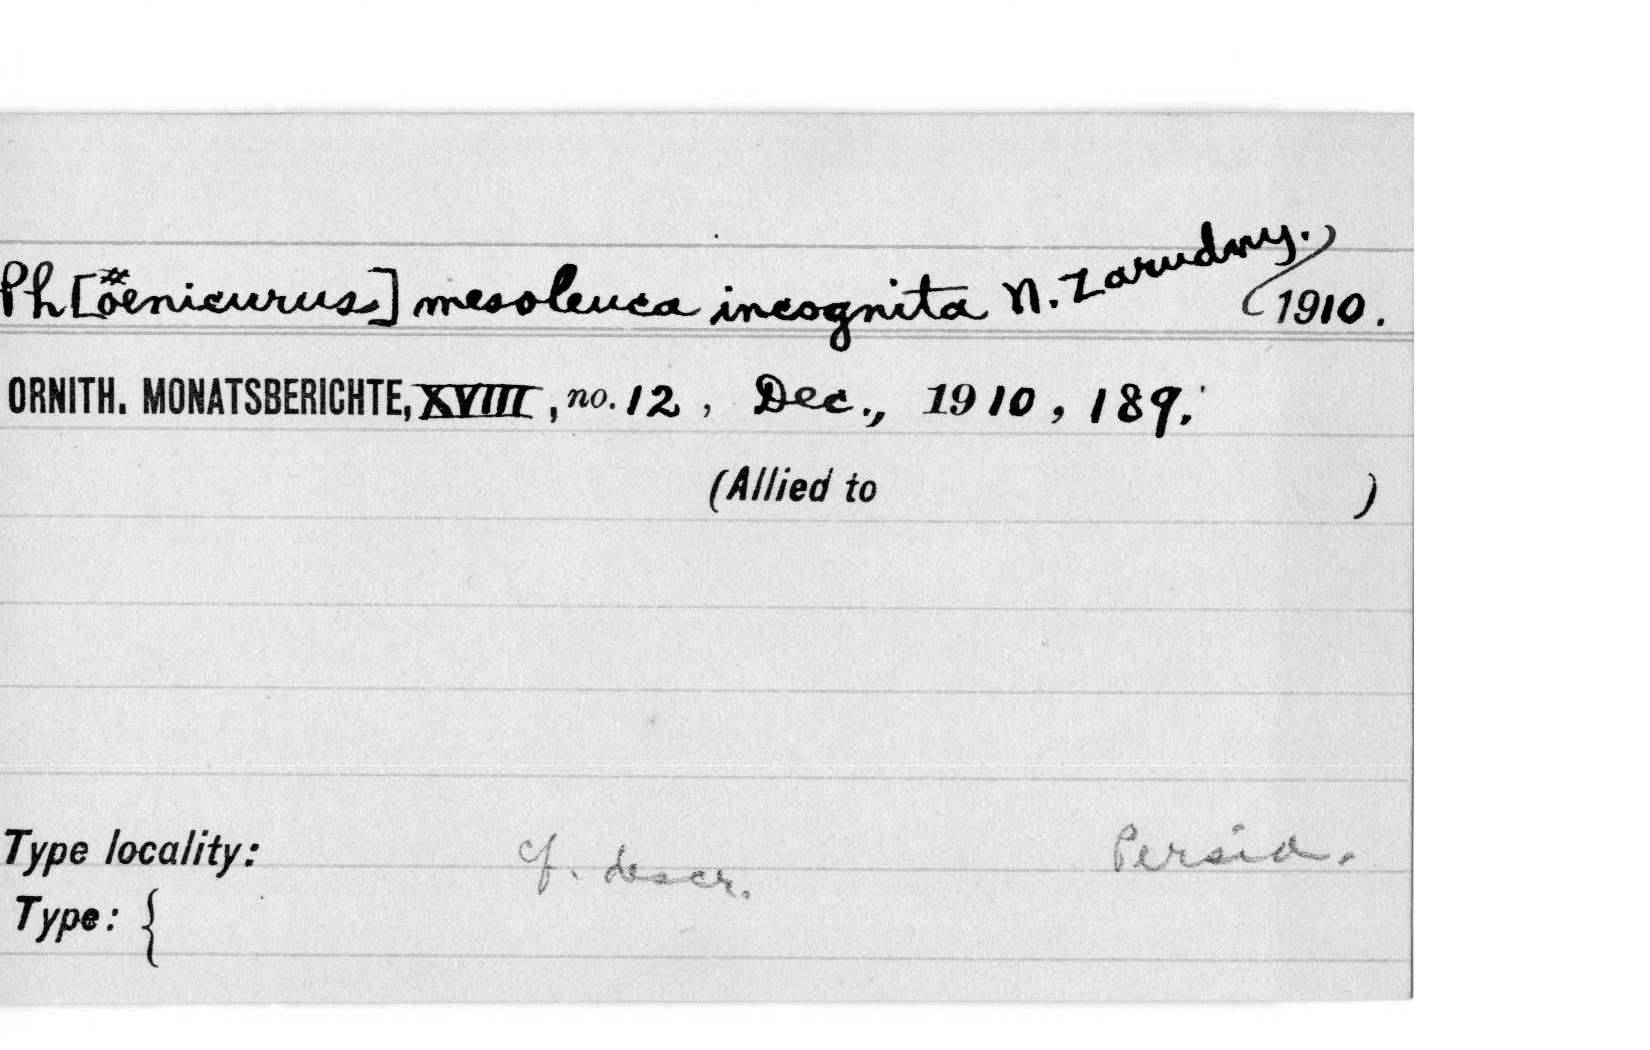 Ph[öenicurus] mesoleuca incognita N. Zarudny.) (1910.
ORNITH. MONATSBERICHTE, XVIII, no. 12, Dec., 1910, 189.
(Allied to )
Type locality: cf. descr. Persia.
Type: {